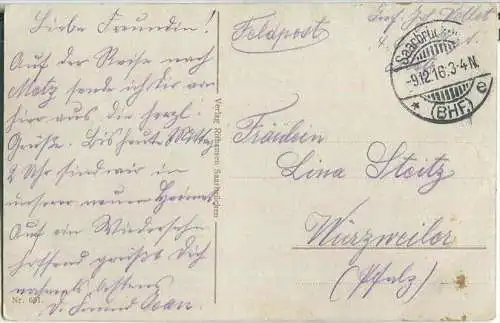 Liebe Freundin!
Auf der Reise nach
Metz sende ich dir von
hier aus die herzl.
Grüße. Bis heute Mittag
2 Uhr sind wir in
unserer neuen Heimat
Auf ein Wiedersehn
hoffend grüßt Dich
D. Freund
Nr. 631.
Feldpost
Saarbrücken
-9.12.16.3-4N.
* (BHF.) e
Fräulein
Lina Steitz
Würzweiler
(Pfalz)